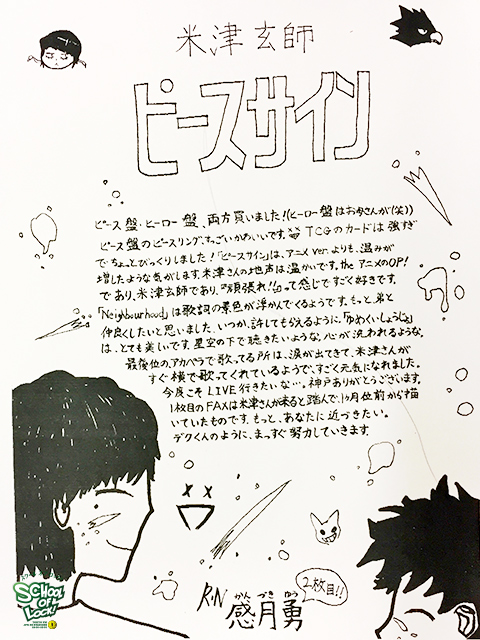 米津玄師
ピースサイン
ピース盤・ヒーロー盤、両方買いました!(ヒーロー盤はお母さんが(笑))
ピース盤のピースリング、すごいかわいいです。TCGのカードは強すぎ
でちょっとびっくりしました!「ピースサイン」は、アニメver.よりも、温みが
増したような気がします。米津さんの地声は温かいです。the アニメのOP!
であり、米津玄師であり、「頑張れ!」って感じですごく好きです。
「Neighbourhood」は歌詞の景色が浮かんでくるようです。もっと、弟と
仲良くしたいと思いました。いつか、許してもらえるように。「ゆめくいしょうじょ」
は、とても美しいです。星空の下で聴きたいような。心が洗われるような。
最後位の、アカペラで歌ってる所は、涙が出てきて、米津さんが
すぐ横で歌ってくれているようで、すごく元気になれました。
今度こそLIVE行きたいな…。神戸ありがとうございます。
1枚目のFAXは米津さんが来ると踏んで、1ヶ月位前から描
いていたものです。もっと、あなたに近づきたい。
デクくんのように、まっすぐ努力していきます。
2枚目!!
R.N
かん づき ゆう
感月勇
SCHOOL
OF
LOCK!